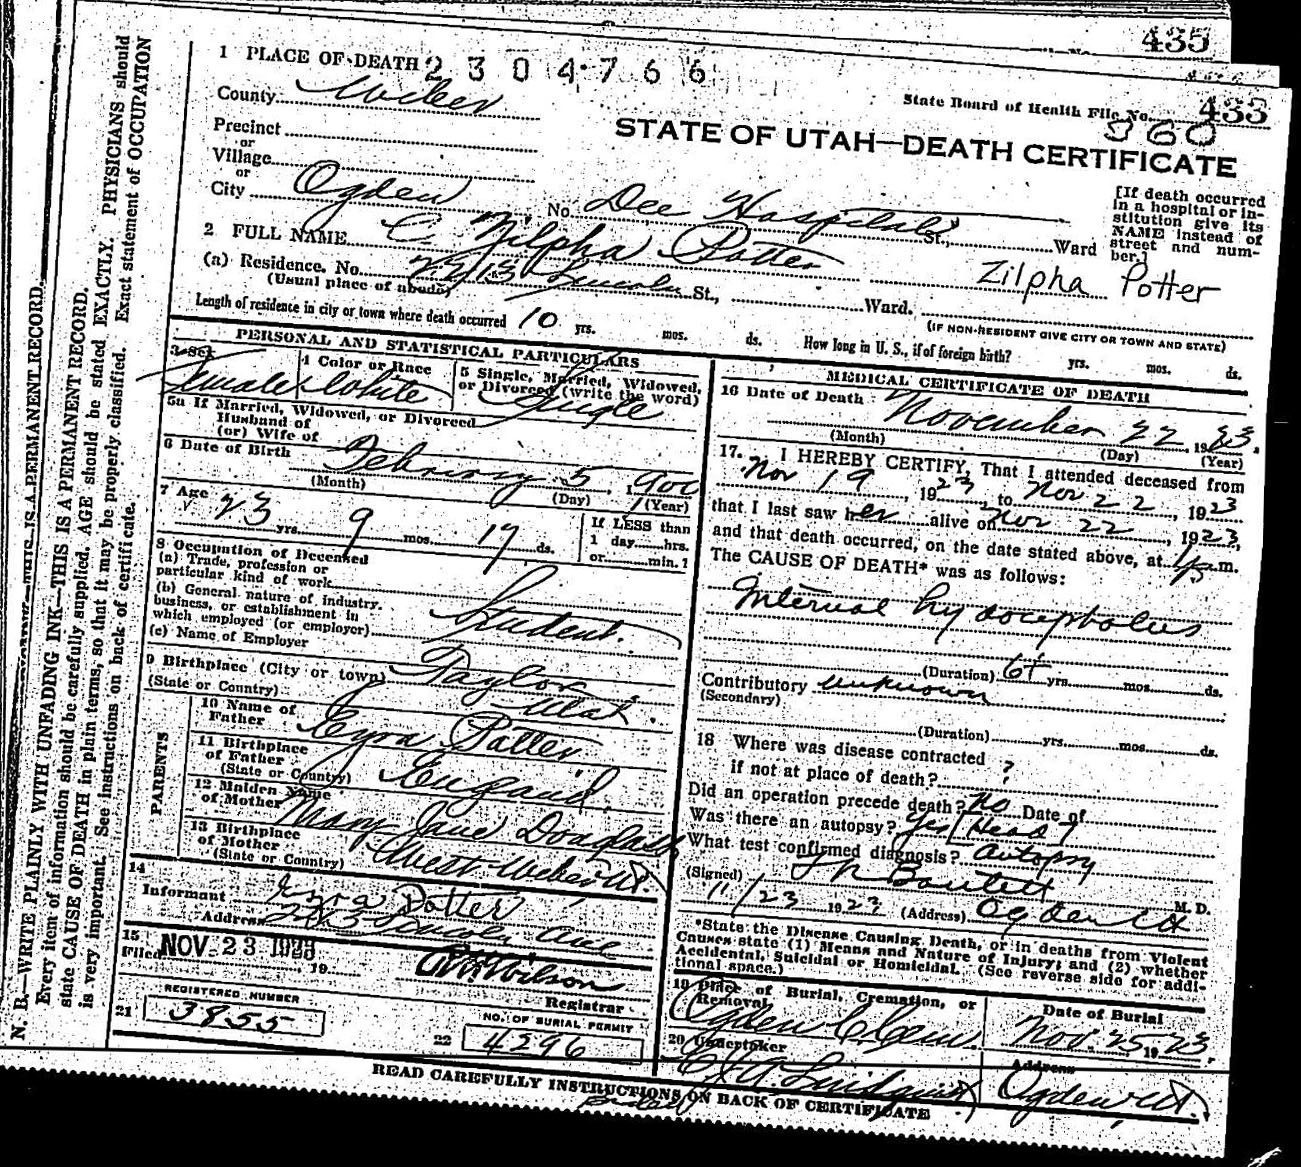 435
1 PLACE OF DEATH 2 3 0 4 7 6 6
State Board of Health File No. 433
County Weber
360
STATE OF UTAH—DEATH CERTIFICATE
Precinct
or
Village
or
City Ogden No. Dee Hospital St., Ward
[If death occurred in a hospital or institution give its NAME instead of street and number.]
2 FULL NAME C. Zilpha Potter
Zilpha Potter
(a) Residence. No. 2713 Lincoln St., Ward.
(Usual place of abode)
(IF NON-RESIDENT GIVE CITY OR TOWN AND STATE)
Length of residence in city or town where death occurred 10 yrs. mos. ds. How long in U. S., if of foreign birth? yrs. mos. ds.
PERSONAL AND STATISTICAL PARTICULARS
3 Sex Female
4 Color or Race White
5 Single, Married, Widowed, or Divorced (write the word) Single
5a If Married, Widowed, or Divorced
Husband of
(or) Wife of
6 Date of Birth February 5, 1900
(Month) (Day) (Year)
7 Age 23 yrs. 9 mos. 17 ds.
If LESS than
1 day hrs.
or min. ?
8 Occupation of Deceased
(a) Trade, profession or
particular kind of work
(b) General nature of industry,
business, or establishment in
which employed (or employer) Student.
(c) Name of Employer
9 Birthplace (City or town) Taylor
(State or Country) Utah.
PARENTS
10 Name of
Father Ezra Potter
11 Birthplace
of Father
(State or Country) England
12 Maiden Name
of Mother Mary Jane Douglass
13 Birthplace
of Mother
(State or Country) West Weber Ut.
14
Informant Ezra Potter
Address Lincoln Ave
15
Filed NOV 23 1923, 19
Wilson
Registrar
REGISTERED NUMBER
21 3855
NO. OF BURIAL PERMIT
22 4296
MEDICAL CERTIFICATE OF DEATH
16 Date of Death November 22, 1923.
(Month) (Day) (Year)
17. I HEREBY CERTIFY, That I attended deceased from
Nov 19, 1923, to Nov 22, 1923
that I last saw her alive on Nov 22, 1923,
and that death occurred, on the date stated above, at m.
The CAUSE OF DEATH* was as follows:
Internal hydocephalus
(Duration) 6+ yrs. mos. ds.
Contributory unknown
(Secondary)
(Duration) yrs. mos. ds.
18 Where was disease contracted
if not at place of death? ?
Did an operation precede death? No Date of
Was there an autopsy? Yes (Head)
What test confirmed diagnosis? Autopsy
(Signed) Bartlett M. D.
11/23 1923 (Address) Ogden Ut
*State the Disease Causing Death, or in deaths from Violent
Causes state (1) Means and Nature of Injury; and (2) whether
Accidental, Suicidal or Homicidal. (See reverse side for additional space.)
19 Place of Burial, Cremation, or
Removal Ogden C. Cem.
Date of Burial
Nov. 25, 1923,
20 Undertaker
Lindquist
Address
Ogden, Ut.
READ CAREFULLY INSTRUCTIONS ON BACK OF CERTIFICATE
N. B.—WRITE PLAINLY WITH UNFADING INK—THIS IS A PERMANENT RECORD.
Every item of information should be carefully supplied. AGE should be stated EXACTLY. PHYSICIANS should
state CAUSE OF DEATH in plain terms, so that it may be properly classified. Exact statement of OCCUPATION
is very important. See instructions on back of certificate.